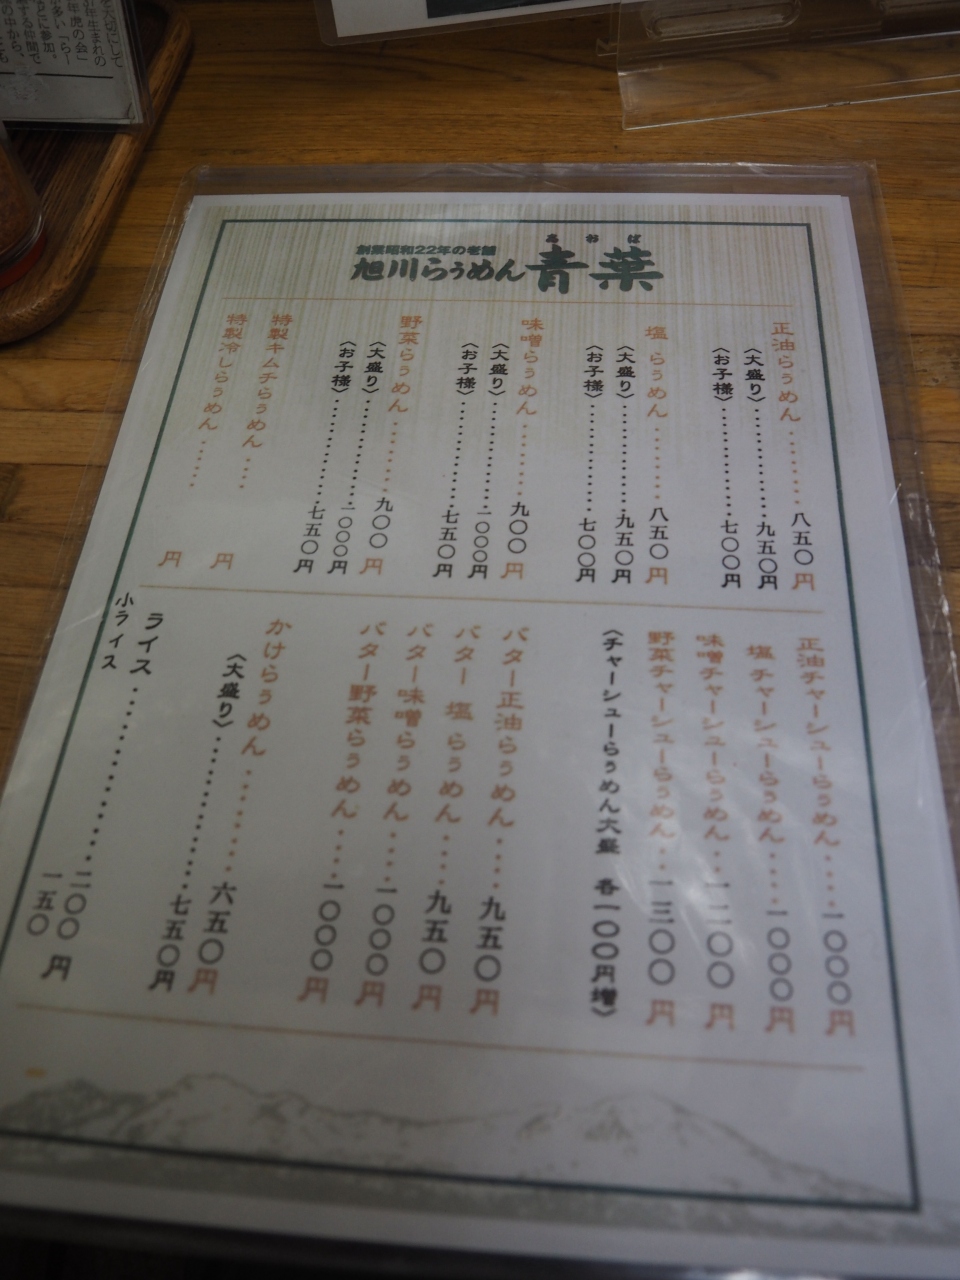 創業昭和22年の老舗
旭川らぅめん青葉
あおば
正油らぅめん ‥‥‥‥ 八五〇円
〈大盛り〉‥‥‥‥‥ 九五〇円
〈お子様〉‥‥‥‥‥ 七〇〇円
塩 らぅめん ‥‥‥‥ 八五〇円
〈大盛り〉‥‥‥‥‥ 九五〇円
〈お子様〉‥‥‥‥‥ 七〇〇円
味噌らぅめん ‥‥‥‥ 九〇〇円
〈大盛り〉‥‥‥‥‥ 一〇〇〇円
〈お子様〉‥‥‥‥‥ 七五〇円
野菜らぅめん ‥‥‥‥ 九〇〇円
〈大盛り〉‥‥‥‥‥ 一〇〇〇円
〈お子様〉‥‥‥‥‥ 七五〇円
特製キムチらぅめん ‥‥ 円
特製冷しらぅめん ‥‥‥ 円
正油チャーシューらぅめん ‥‥ 一〇〇〇円
塩 チャーシューらぅめん ‥‥ 一〇〇〇円
味噌チャーシューらぅめん ‥‥ 一一〇〇円
野菜チャーシューらぅめん ‥‥ 一三〇〇円
〈チャーシューらぅめん大盛 各一〇〇円増〉
バター正油らぅめん ‥‥ 九五〇円
バター 塩 らぅめん ‥‥ 九五〇円
バター味噌らぅめん ‥‥ 一〇〇〇円
バター野菜らぅめん ‥‥ 一〇〇〇円
かけらぅめん ‥‥‥‥ 六五〇円
〈大盛り〉‥‥‥‥‥ 七五〇円
ライス ‥‥‥‥‥‥ 二〇〇円
小ライス 一五〇